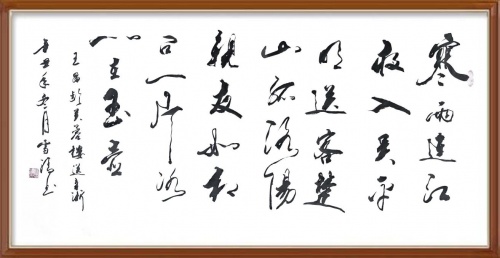 寒雨連江
夜入吴平
明送客楚
山孤洛陽
親友如相
问一片冰
心在玉壶
王昌龄芙蓉樓送辛渐
辛丑年冬月